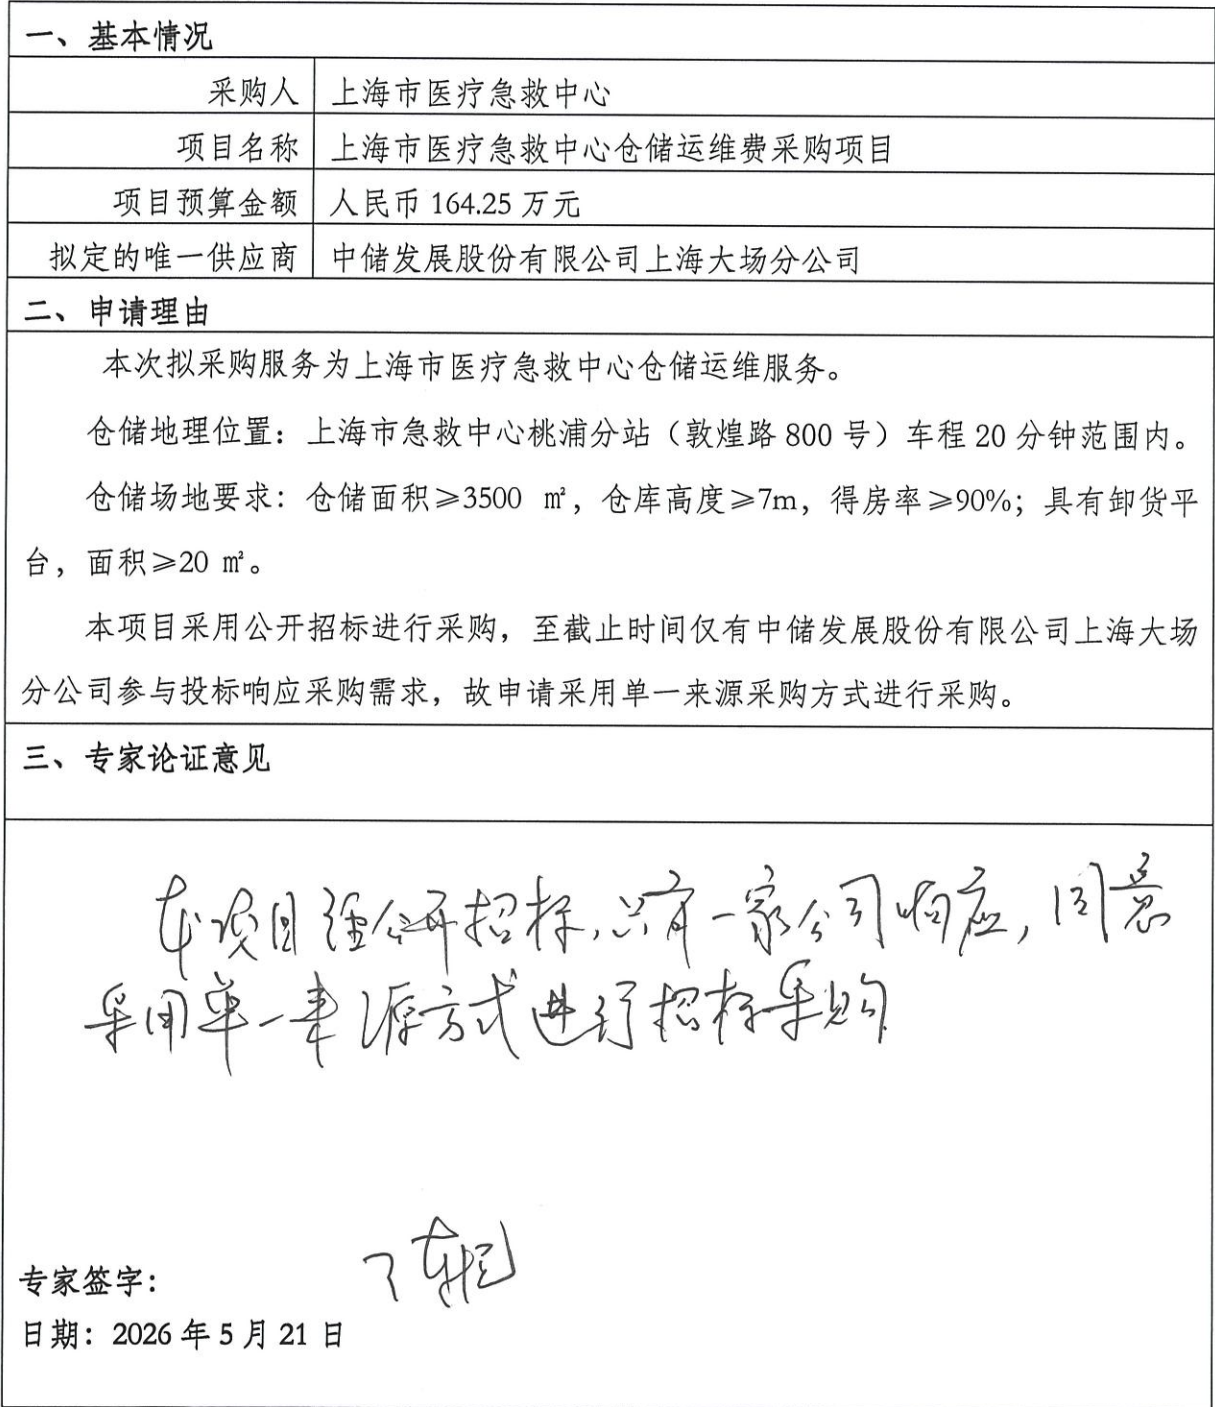 一、基本情况
采购人 上海市医疗急救中心
项目名称 上海市医疗急救中心仓储运维费采购项目
项目预算金额 人民币 164.25 万元
拟定的唯一供应商 中储发展股份有限公司上海大场分公司
二、申请理由
本次拟采购服务为上海市医疗急救中心仓储运维服务。
仓储地理位置：上海市急救中心桃浦分站（敦煌路 800 号）车程 20 分钟范围内。
仓储场地要求：仓储面积≥3500 ㎡，仓库高度≥7m，得房率≥90%；具有卸货平
台，面积≥20 ㎡。
本项目采用公开招标进行采购，至截止时间仅有中储发展股份有限公司上海大场
分公司参与投标响应采购需求，故申请采用单一来源采购方式进行采购。
三、专家论证意见
本项目经公开招标，只有一家公司响应，同意
采用单一来源方式进行招标采购
专家签字：
日期：2026 年 5 月 21 日